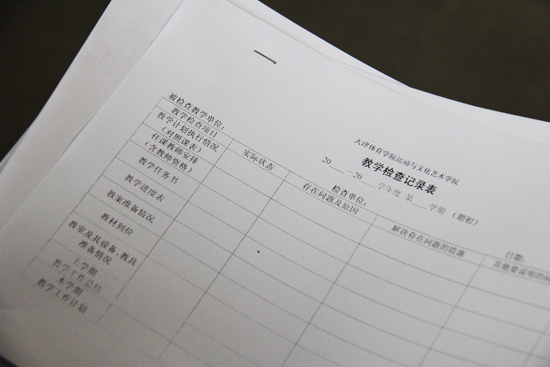 天津体育学院运动与文化艺术学院
教学检查记录表
20 —20 学年度 第 学期 (期初)
被检查教学单位: 检查单位: 日期:
教学检查项目 实际状态 存在问题及原因 解决存在问题的措施 其他要说明的
教学计划执行情况
(对照课表)
任课教师安排
(含教师资格)
教学任务书
教学进度表
教案准备情况
教材到位
教室及其设备、教具
准备情况
上学期
教学工作总结
本学期
教学工作计划